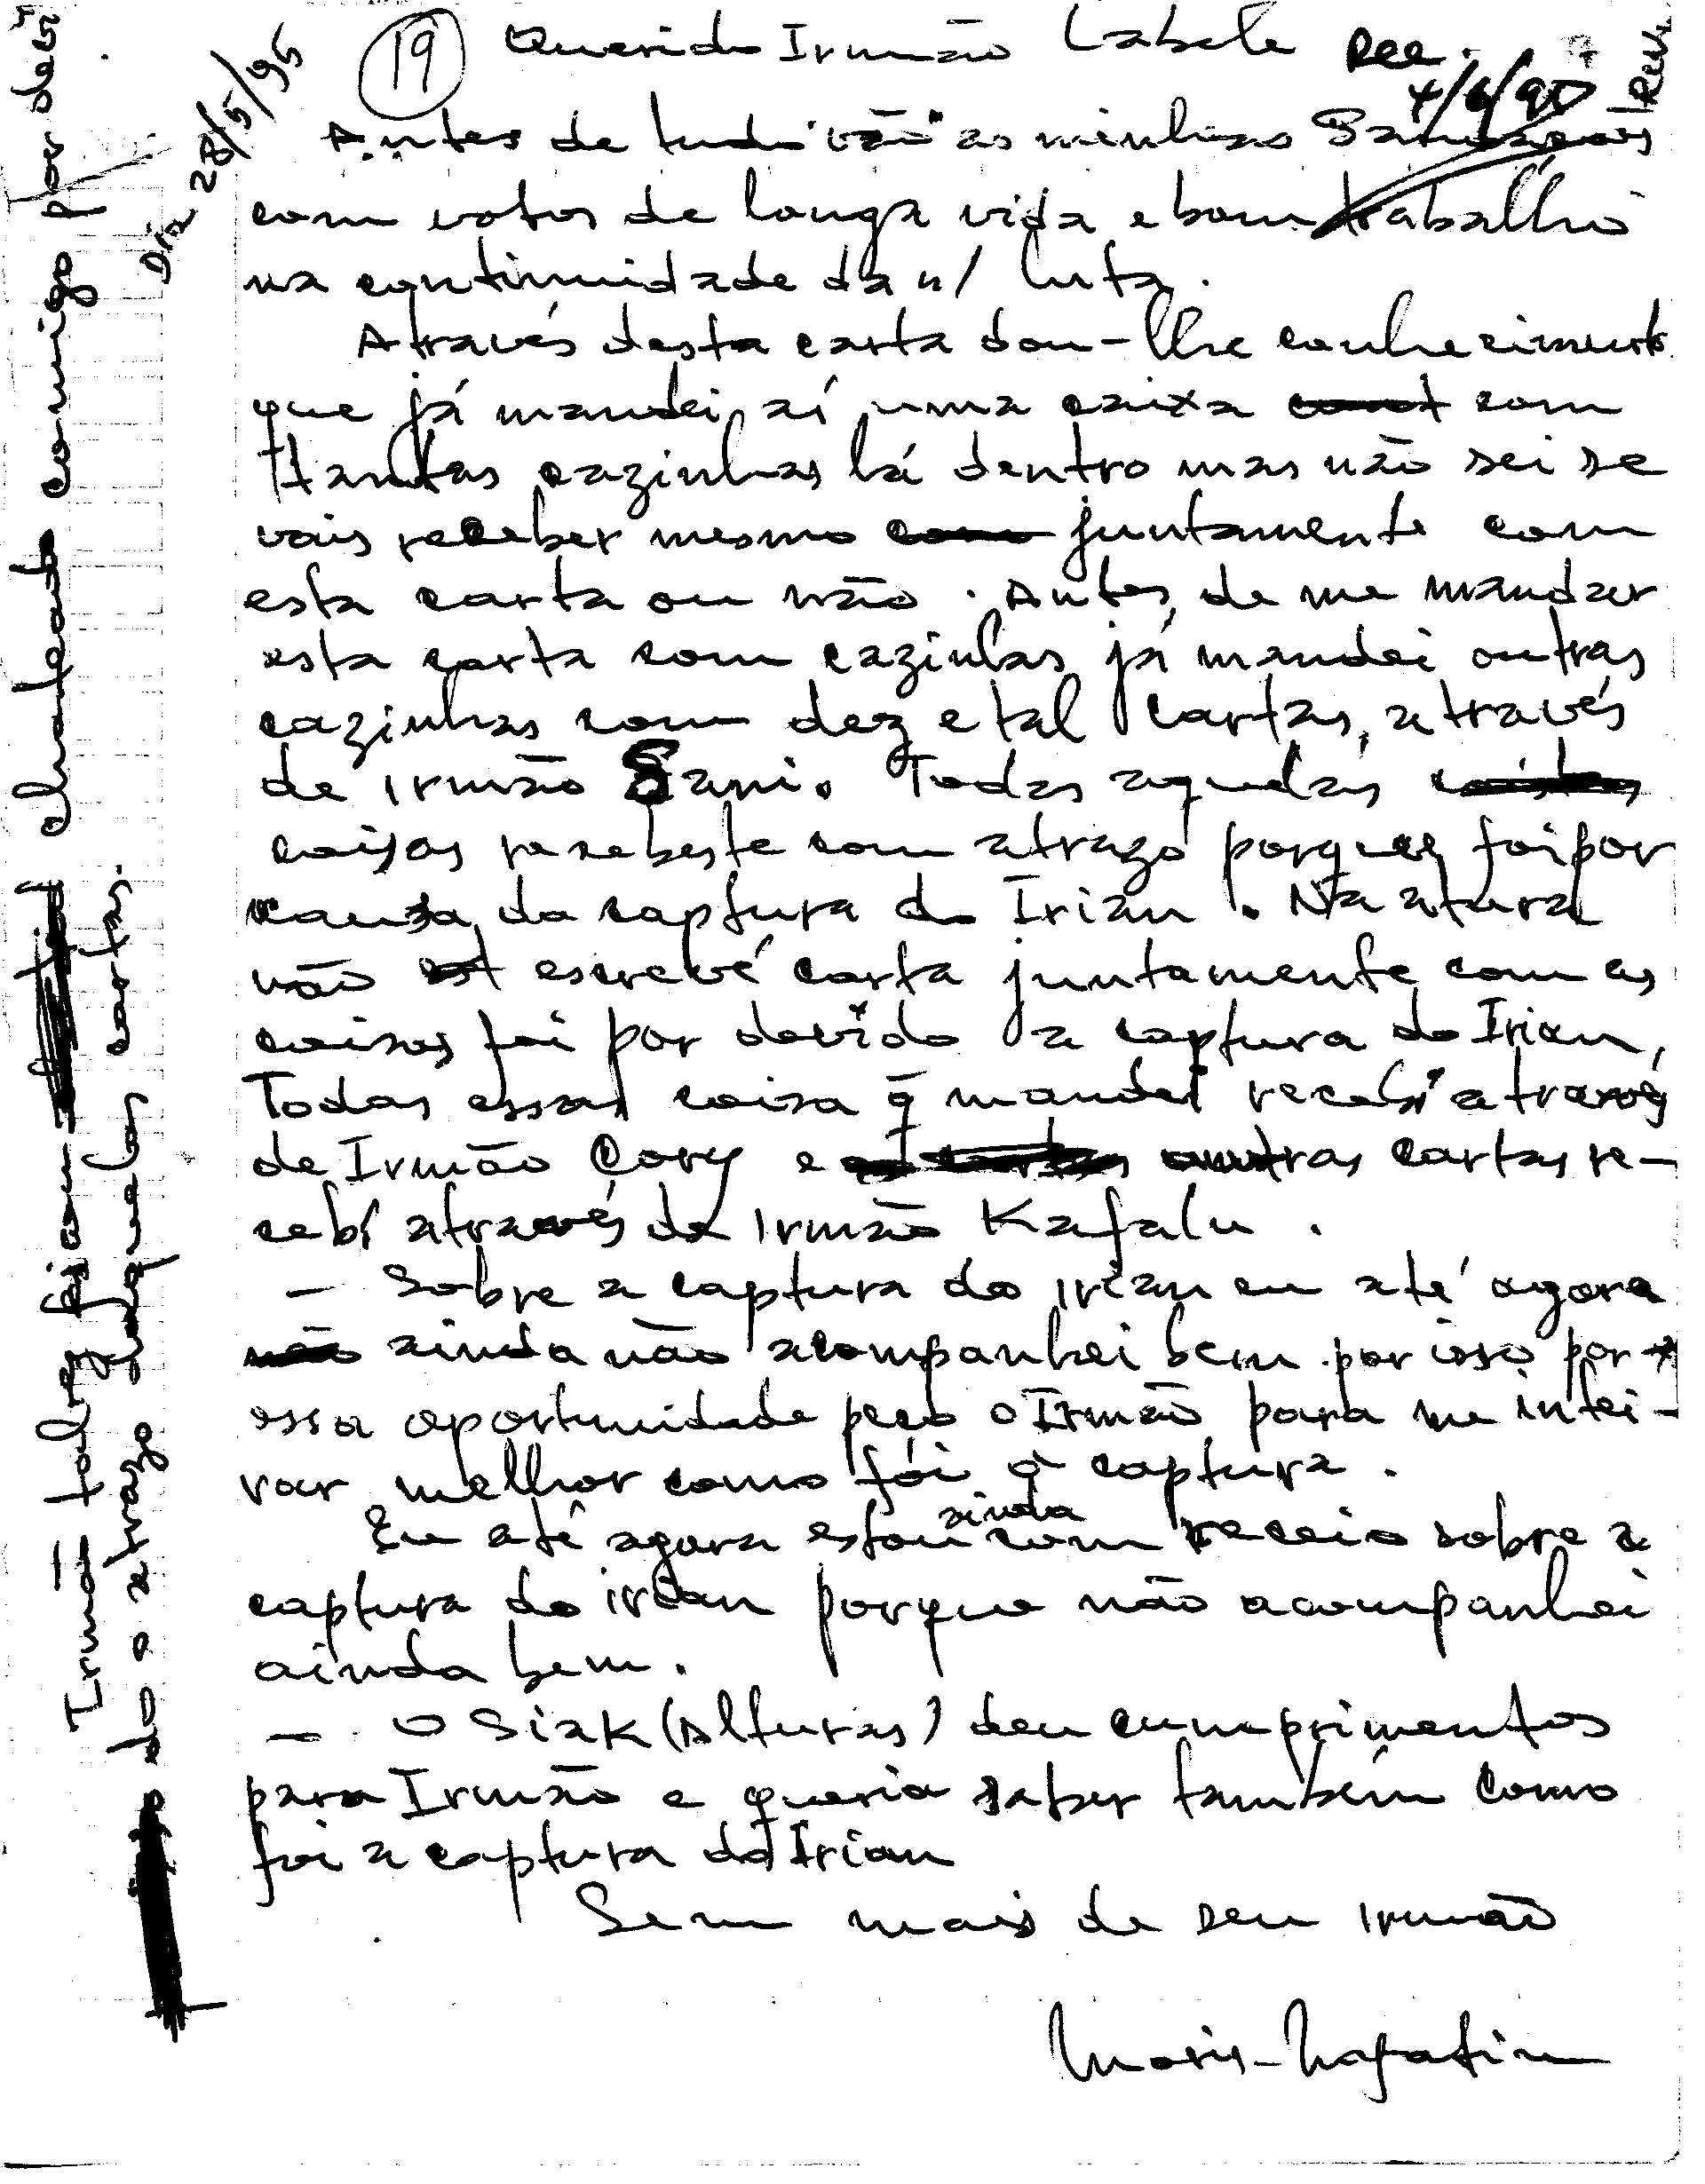 19
Querido Irmão Labele
Rec.
4/6/95
Dia 28/5/95
Antes de tudo vão as minhas Saudações
com votos de longa vida e bom trabalho
na continuidade da n/ luta.
Através desta carta dou-lhe conhecimento
que já mandei aí uma caixa com
tantas cazinhas lá dentro mas não sei se
vais receber mesmo juntamente com
esta carta ou não. Antes de me mandar
esta carta com cazinhas já mandei outras
cazinhas com dez e tal cartas, através
de irmão Sani. Todas aquelas
coisas resebeste com atrazo porque foi por
causa da captura do Irian. Na atura
não escrevé carta juntamente com as
coisas foi por devido a captura do Irian,
Todas essas coisa q̃ mandei recebi através
de Irmão Cory e outras cartas re-
cebí através de irmão Kafalu.
— Sobre a captura do irian eu até agora
ainda não acompanhei bem por isso por
essa oportunidade peço o Irmão para me intei-
rar melhor como foi a captura.
Eu até agora estou ainda com receio sobre a
captura do irian porque não acompanhei
ainda bem.
— O Siak (Alturas) deu cumprimentos
para Irmão e queria saber também como
foi a captura do Irian
Sem mais de seu irmão
Irmão talvez fiquem chateado comigo por devi
do o atrazo daquelas cartas.